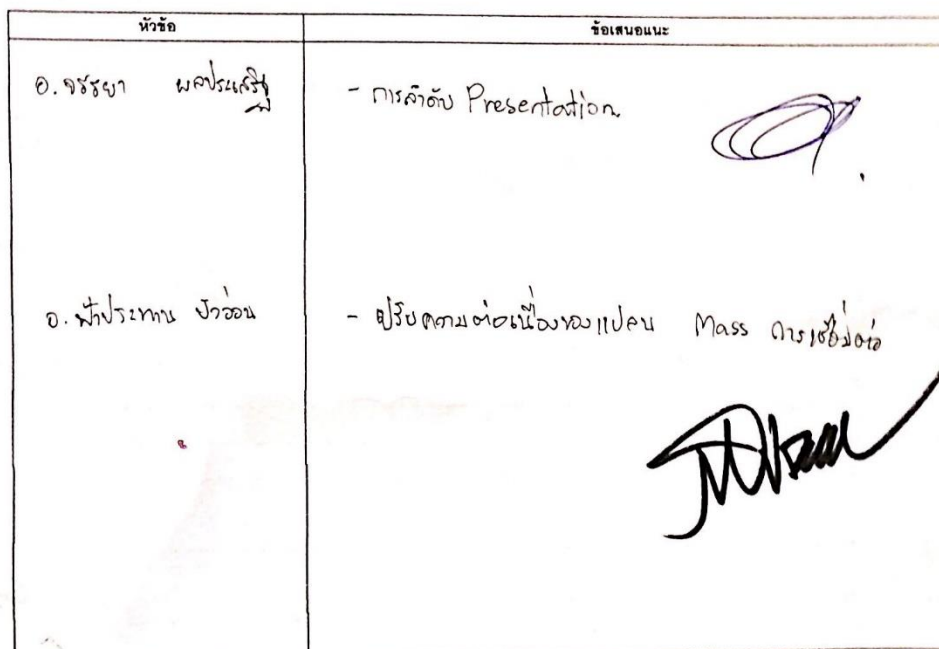 หัวข้อ
ข้อเสนอแนะ
อ. จรรยา ผลประเสริฐ
- การลำดับ Presentation
อ. ฟ้าประทาน บัวอ่อน
- ปรับความต่อเนื่องของแปลน Mass การเชื่อมต่อ